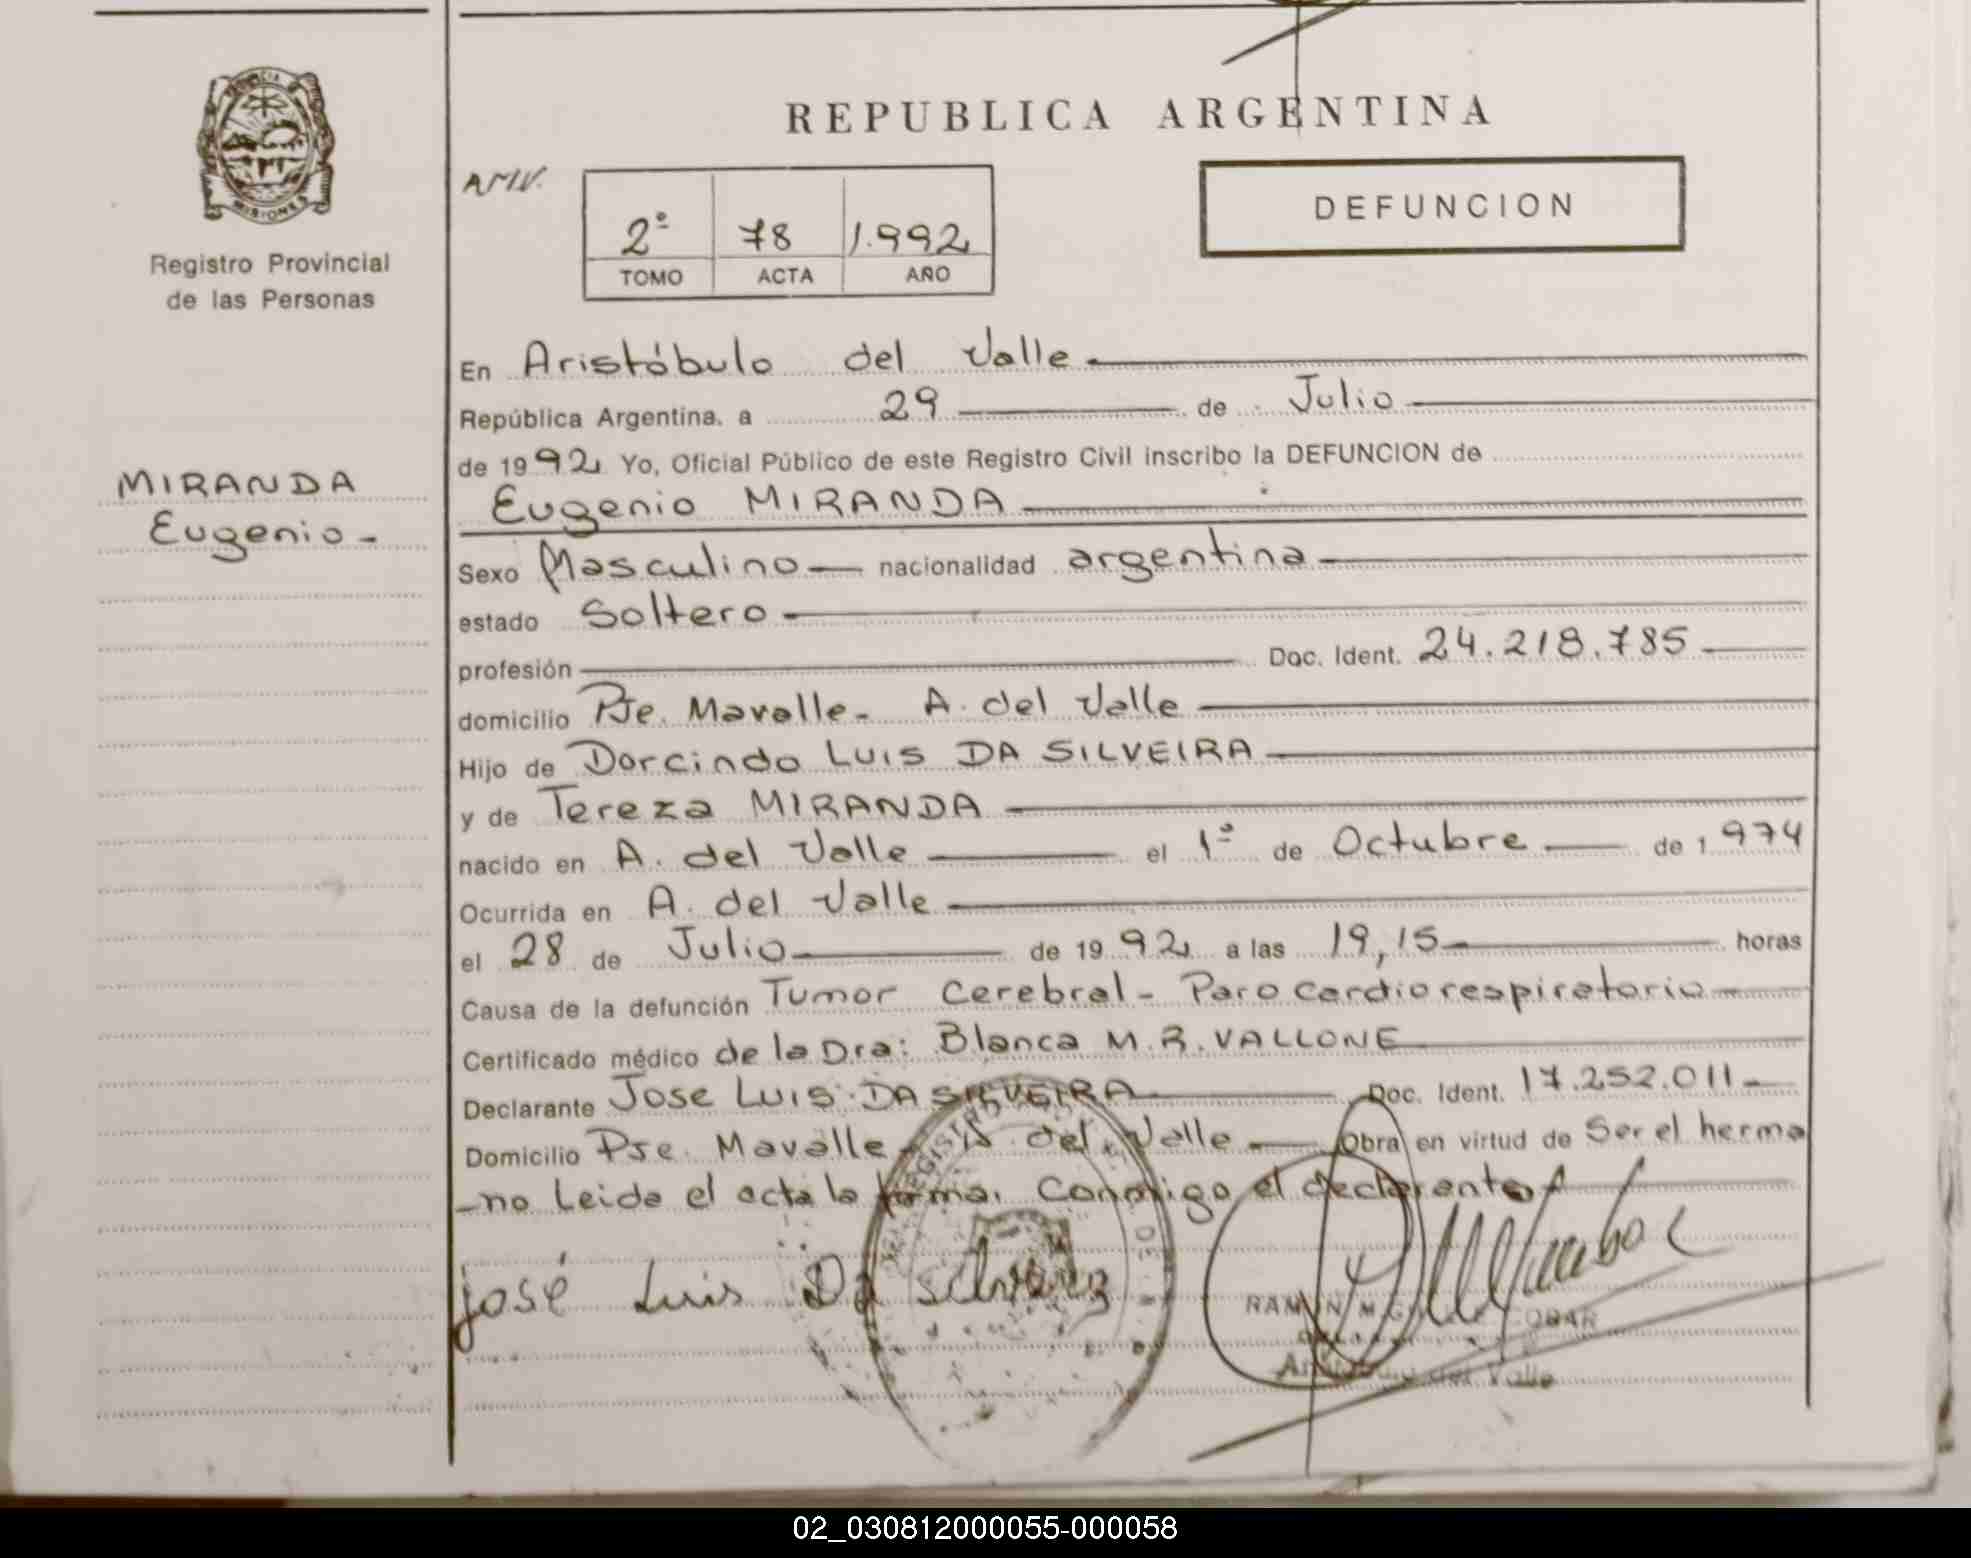 REPUBLICA ARGENTINA
PROVINCIA
MISIONES
Registro Provincial
de las Personas
MIRANDA
Eugenio -
AMV.
2º 78 1.992
TOMO ACTA AÑO
DEFUNCION
En Aristóbulo del Valle
República Argentina, a 29 de Julio
de 1992 Yo, Oficial Público de este Registro Civil inscribo la DEFUNCION de
Eugenio MIRANDA
Sexo Masculino nacionalidad argentina
estado Soltero
profesión Doc. Ident. 24.218.785
domicilio Pje. Mavalle - A. del Valle
Hijo de Dorcindo LUIS DA SILVEIRA
y de Tereza MIRANDA
nacido en A. del Valle el 1º de Octubre de 1974
Ocurrida en A. del Valle
el 28 de Julio de 1992 a las 19,15 horas
Causa de la defunción Tumor Cerebral - Paro cardiorespiratorio
Certificado médico de la Dra: Blanca M. R. VALLONE
Declarante Jose LUIS DA SILVEIRA Doc. Ident. 17.252.011
Domicilio Pje. Mavalle - A. del Valle Obra en virtud de Ser el herma
-no Leida el acta la firma, Conmigo el declarante
José Luis Da Silveira
Valle
02_030812000055-000058